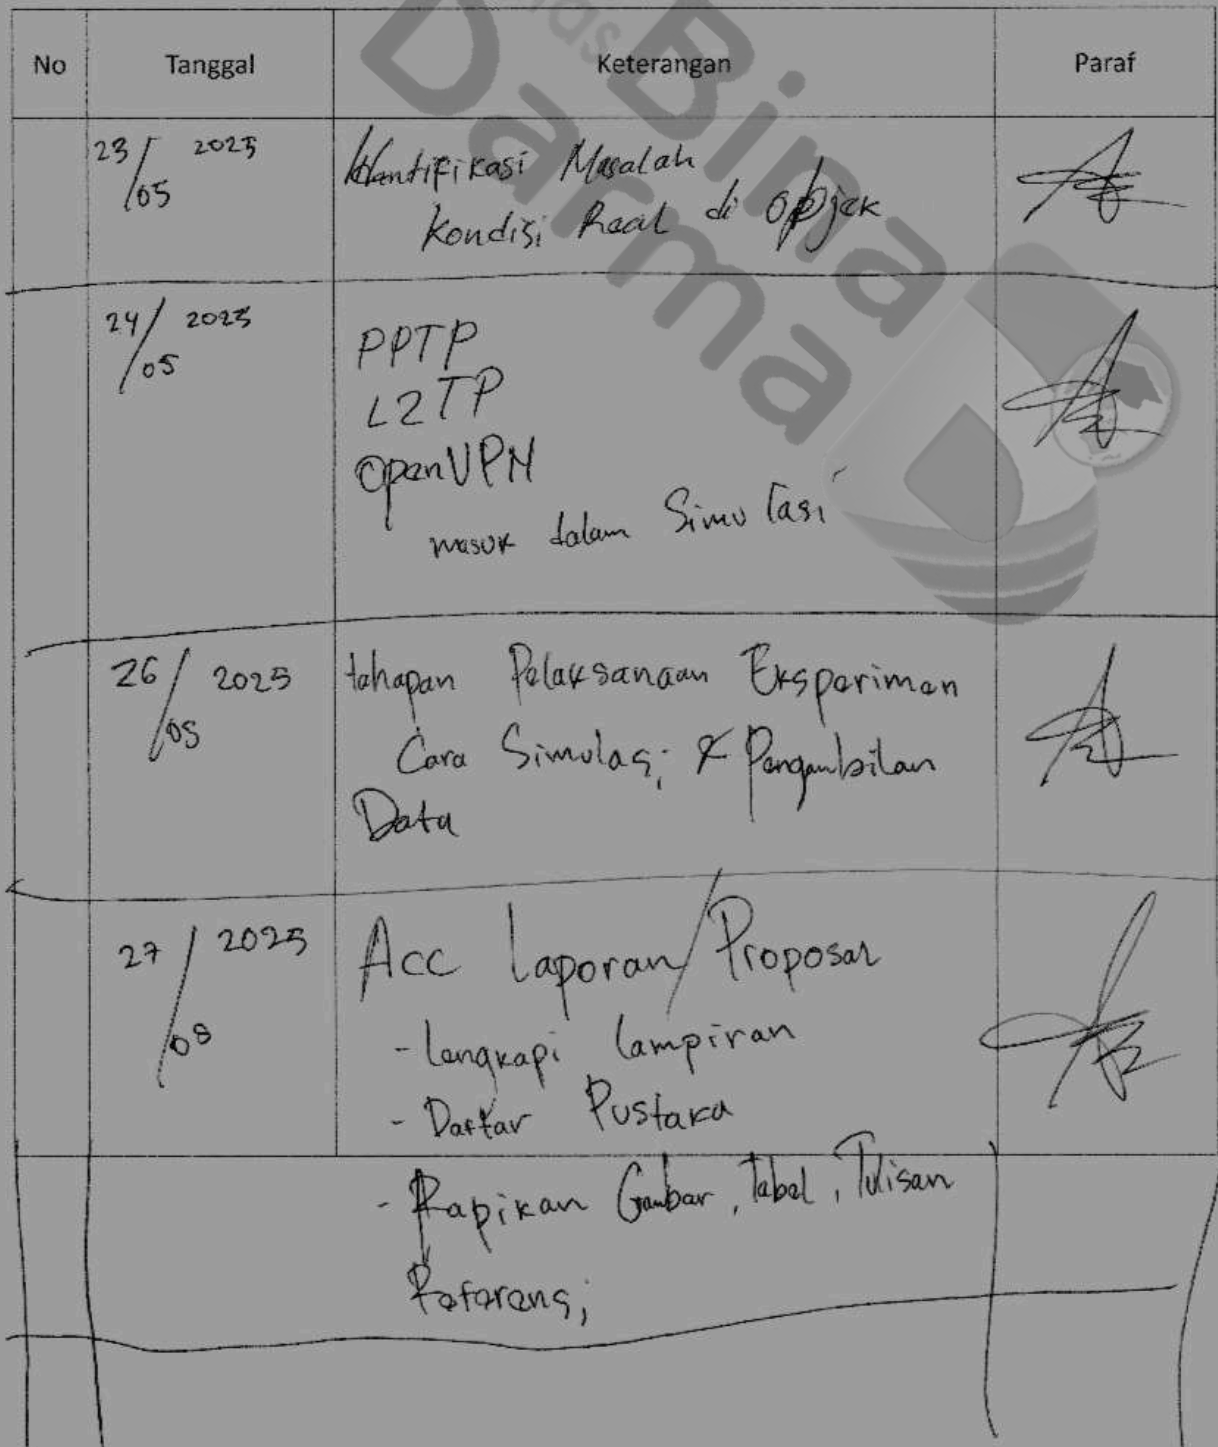 Bina
Darma
No Tanggal Keterangan Paraf
23/05 2025 Identifikasi Masalah
Kondisi Real di objek
24/05 2025 PPTP
L2TP
OpenVPN
masuk dalam Simulasi
26/05 2025 tahapan Pelaksanaan Eksperimen
Cara Simulasi & Pengambilan
Data
27/08 2025 Acc Laporan/Proposal
- Lengkapi lampiran
- Daftar Pustaka
- Rapikan Gambar, Tabel, Tulisan
Referensi